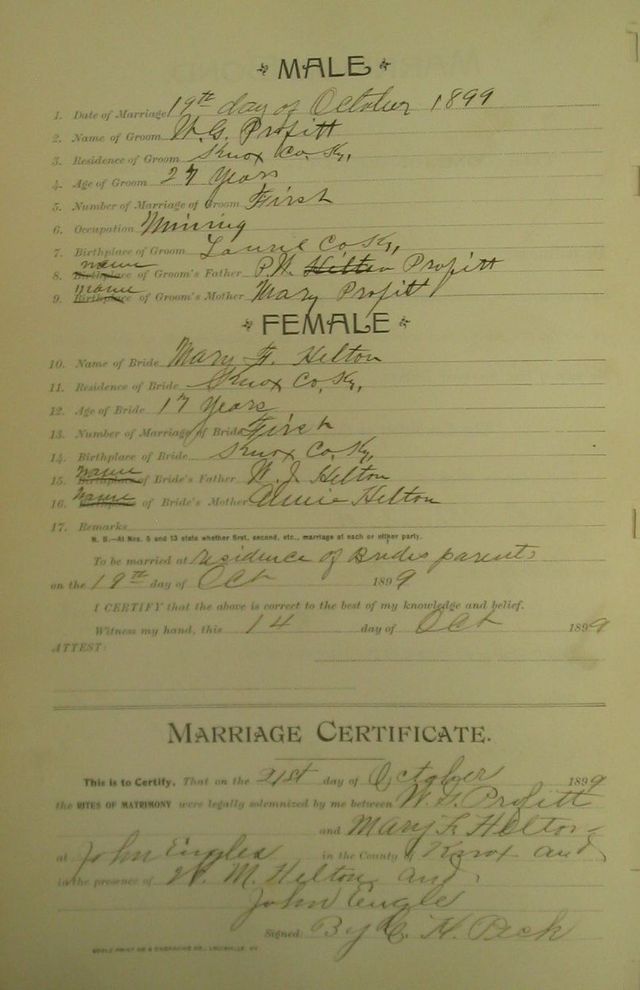 MALE
1. Date of Marriage 19th day of October 1899
2. Name of Groom W. G. Profitt
3. Residence of Groom Knox Co. Ky,
4. Age of Groom 27 Years
5. Number of Marriage of Groom First
6. Occupation Mining
7. Birthplace of Groom Laurel Co Ky,
name
8. Birthplace of Groom's Father P. W. Hilton Profitt
name
9. Birthplace of Groom's Mother Mary Profitt
FEMALE
10. Name of Bride Mary F. Helton
11. Residence of Bride Knox Co, Ky,
12. Age of Bride 17 Years
13. Number of Marriage of Bride First
14. Birthplace of Bride Knox Co, Ky,
name
15. Birthplace of Bride's Father W. J. Helton
name
16. Birthplace of Bride's Mother Helton
17. Remarks
N. B.—At Nos. 5 and 13 state whether first, second, etc., marriage at each or either party.
To be married at residence of Brides parents
on the 19th day of Oct 1899
I CERTIFY that the above is correct to the best of my knowledge and belief.
Witness my hand, this 14 day of Oct 1899
ATTEST:
MARRIAGE CERTIFICATE.
This is to Certify, That on the 21st day of October 1899
the RITES OF MATRIMONY were legally solemnized by me between W. G. Profitt
and Mary F. Helton
at John Engles in the County of Knox and
in the presence of W. M. Helton and
John Engle
Signed: By C. H. Peck